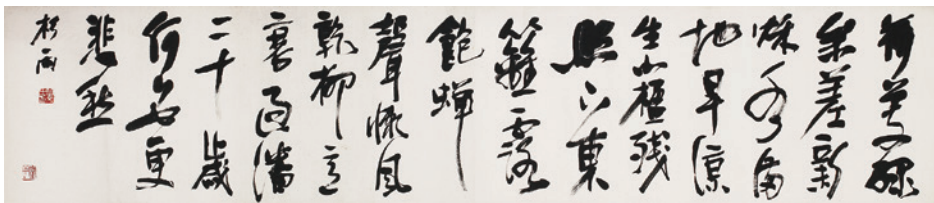 荷芰綠
參差新
秋水滿
池早涼
生北檻殘
照下東
籬露
飽蟬
聲懶風
乾柳意
衰過潘
二十歲
何必更
悲愁